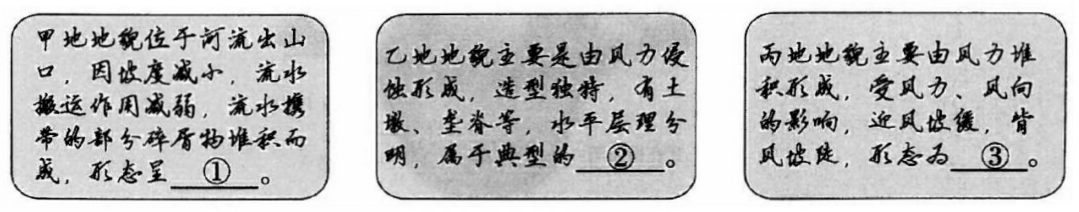 甲地地貌位于河流出山
口，因坡度减小，流水
搬运作用减弱，流水携
带的部分碎屑物堆积而
成，形态呈 ① 。
乙地地貌主要是由风力侵
蚀形成，造型独特，有土
墩、垄脊等，水平层理分
明，属于典型的 ② 。
丙地地貌主要由风力堆
积形成，受风力、风向
的影响，迎风坡缓，背
风坡陡，形态为 ③ 。